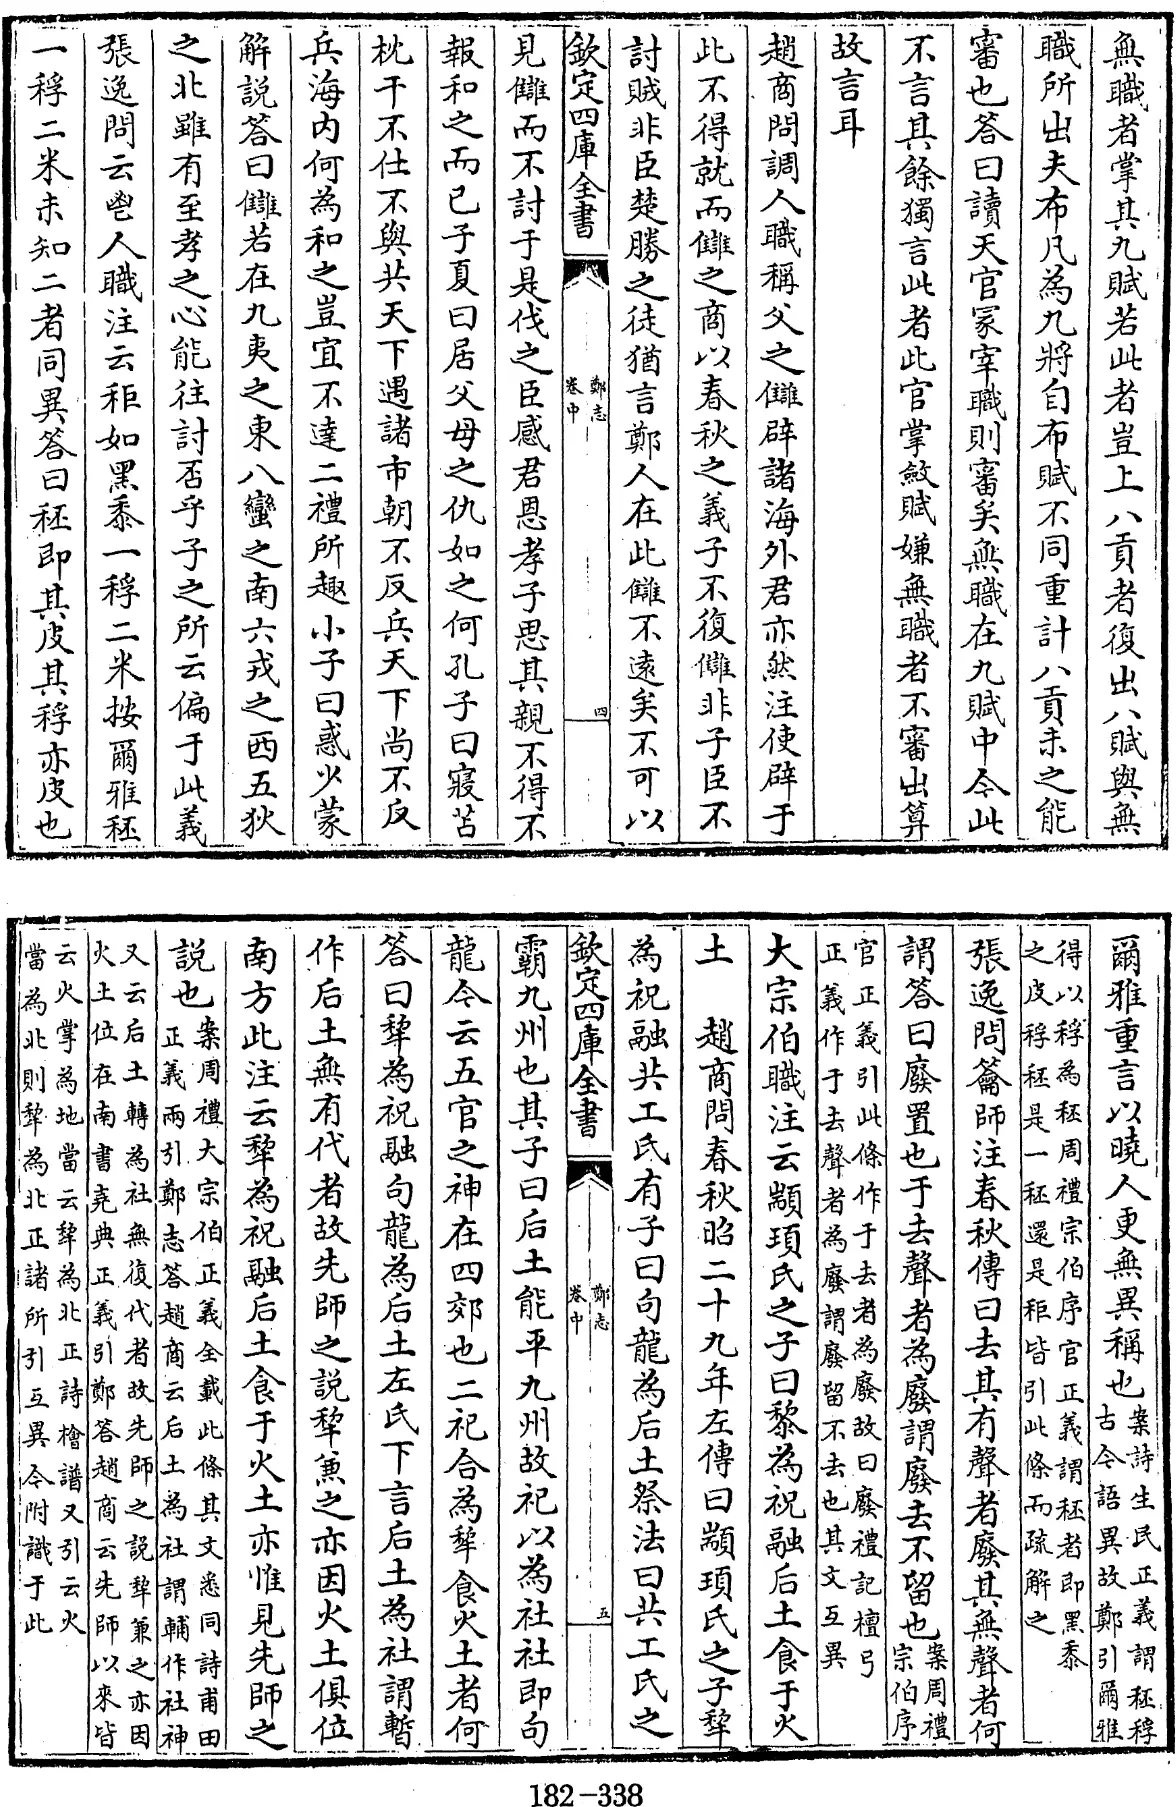 無職者掌其九賦若此者豈上八貢者復出八賦與無
職所出夫布凡為九將自布賦不同重計八貢未之能
審也答曰讀天官冢宰職則審矣無職在九賦中今此
不言其餘獨言此者此官掌斂賦嫌無職者不審出算
故言耳
趙商問調人職稱父之讎辟諸海外君亦然注使辟于
此不得就而讎之商以春秋之義子不復讎非子臣不
討賊非臣楚勝之徒猶言鄭人在此讎不遠矣不可以
欽定四庫全書
鄭志
卷中
四
見讎而不討于是伐之臣感君恩孝子思其親不得不
報和之而已子夏曰居父母之仇如之何孔子曰寢苫
枕干不仕不與共天下遇諸市朝不反兵天下尚不反
兵海內何為和之豈宜不達二禮所趣小子曰惑少蒙
解說答曰讎若在九夷之東八蠻之南六戎之西五狄
之北雖有至孝之心能往討否乎子之所云偏于此義
張逸問云鬯人職注云秬如黑黍一稃二米按爾雅秠
一稃二米未知二者同異答曰秠即其皮其稃亦皮也
爾雅重言以曉人更無異稱也案詩生民正義謂秠稃
古今語異故鄭引爾雅
得以稃為秠周禮宗伯序官正義謂秠者即黑黍
之皮稃秠是一秠還是秬皆引此條而疏解之
張逸問籥師注春秋傳曰去其有聲者廢其無聲者何
謂答曰廢置也于去聲者為廢謂廢去不留也案周禮
宗伯序
官正義引此條作于去者為廢故曰廢禮記檀弓
正義作于去聲者為廢謂廢留不去也其文互異
大宗伯職注云顓頊氏之子曰黎為祝融后土食于火
土 趙商問春秋昭二十九年左傳曰顓頊氏之子犂
為祝融共工氏有子曰句龍為后土祭法曰共工氏之
欽定四庫全書
鄭志
卷中
五
霸九州也其子曰后土能平九州故祀以為社社即句
龍今云五官之神在四郊也二祀合為犂食火土者何
答曰犂為祝融句龍為后土左氏下言后土為社謂暫
作后土無有代者故先師之說犂兼之亦因火土俱位
南方此注云犂為祝融后土食于火土亦惟見先師之
說也案周禮大宗伯正義全載此條其文悉同詩甫田
正義兩引鄭志答趙商云后土為社謂輔作社神
又云后土轉為社無復代者故先師之說犂兼之亦因
火土位在南書堯典正義引鄭答趙商云先師以來皆
云火掌為地當云犂為北正詩檜譜又引云火
當為北則犂為北正諸所引互異今附識于此
182-338